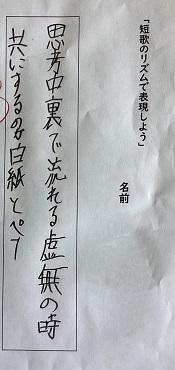 「短歌のリズムで表現しよう」
名前
思考中裏で流れる虚無の時
共にするのは白紙とペン